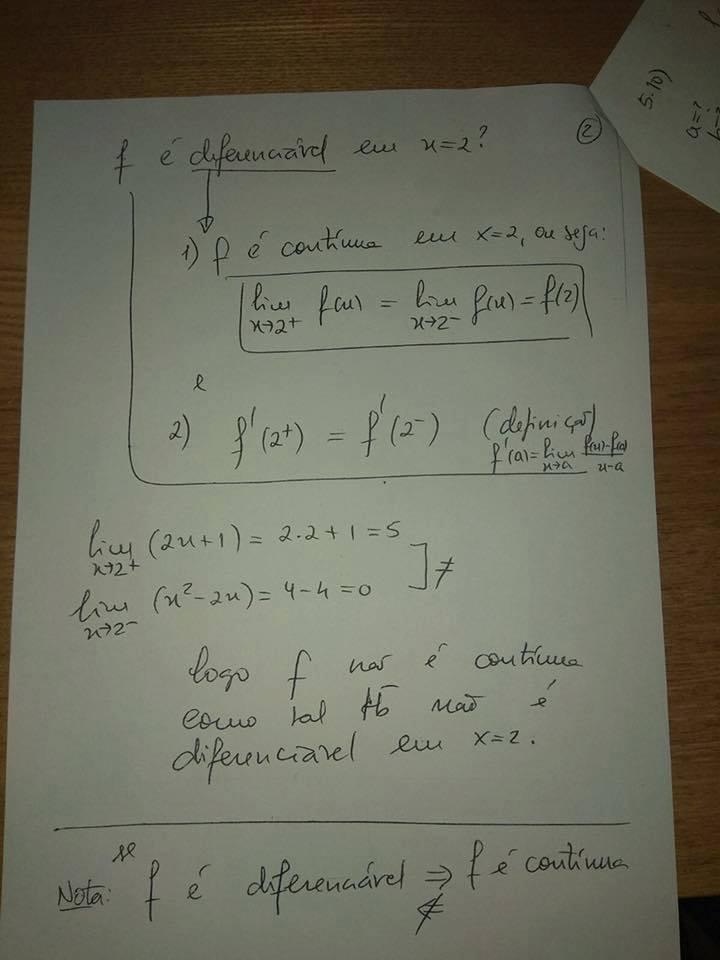 ②
f é diferenciável em x=2?
1) f é contínua em x=2, ou seja:
lim x→2+ f(x) = lim x→2- f(x) = f(2)
e
2) f'(2+) = f'(2-) (definição)
f'(a)=lim x→a f(x)-f(a) / x-a
lim x→2+ (2x+1) = 2.2+1=5
] ≠
lim x→2- (x²-2x) = 4-4=0
logo f não é contínua
como tal tb não é
diferenciável em x=2.
Nota: se f é diferenciável ⇒ f é contínua
⇍
5.10)
a=?